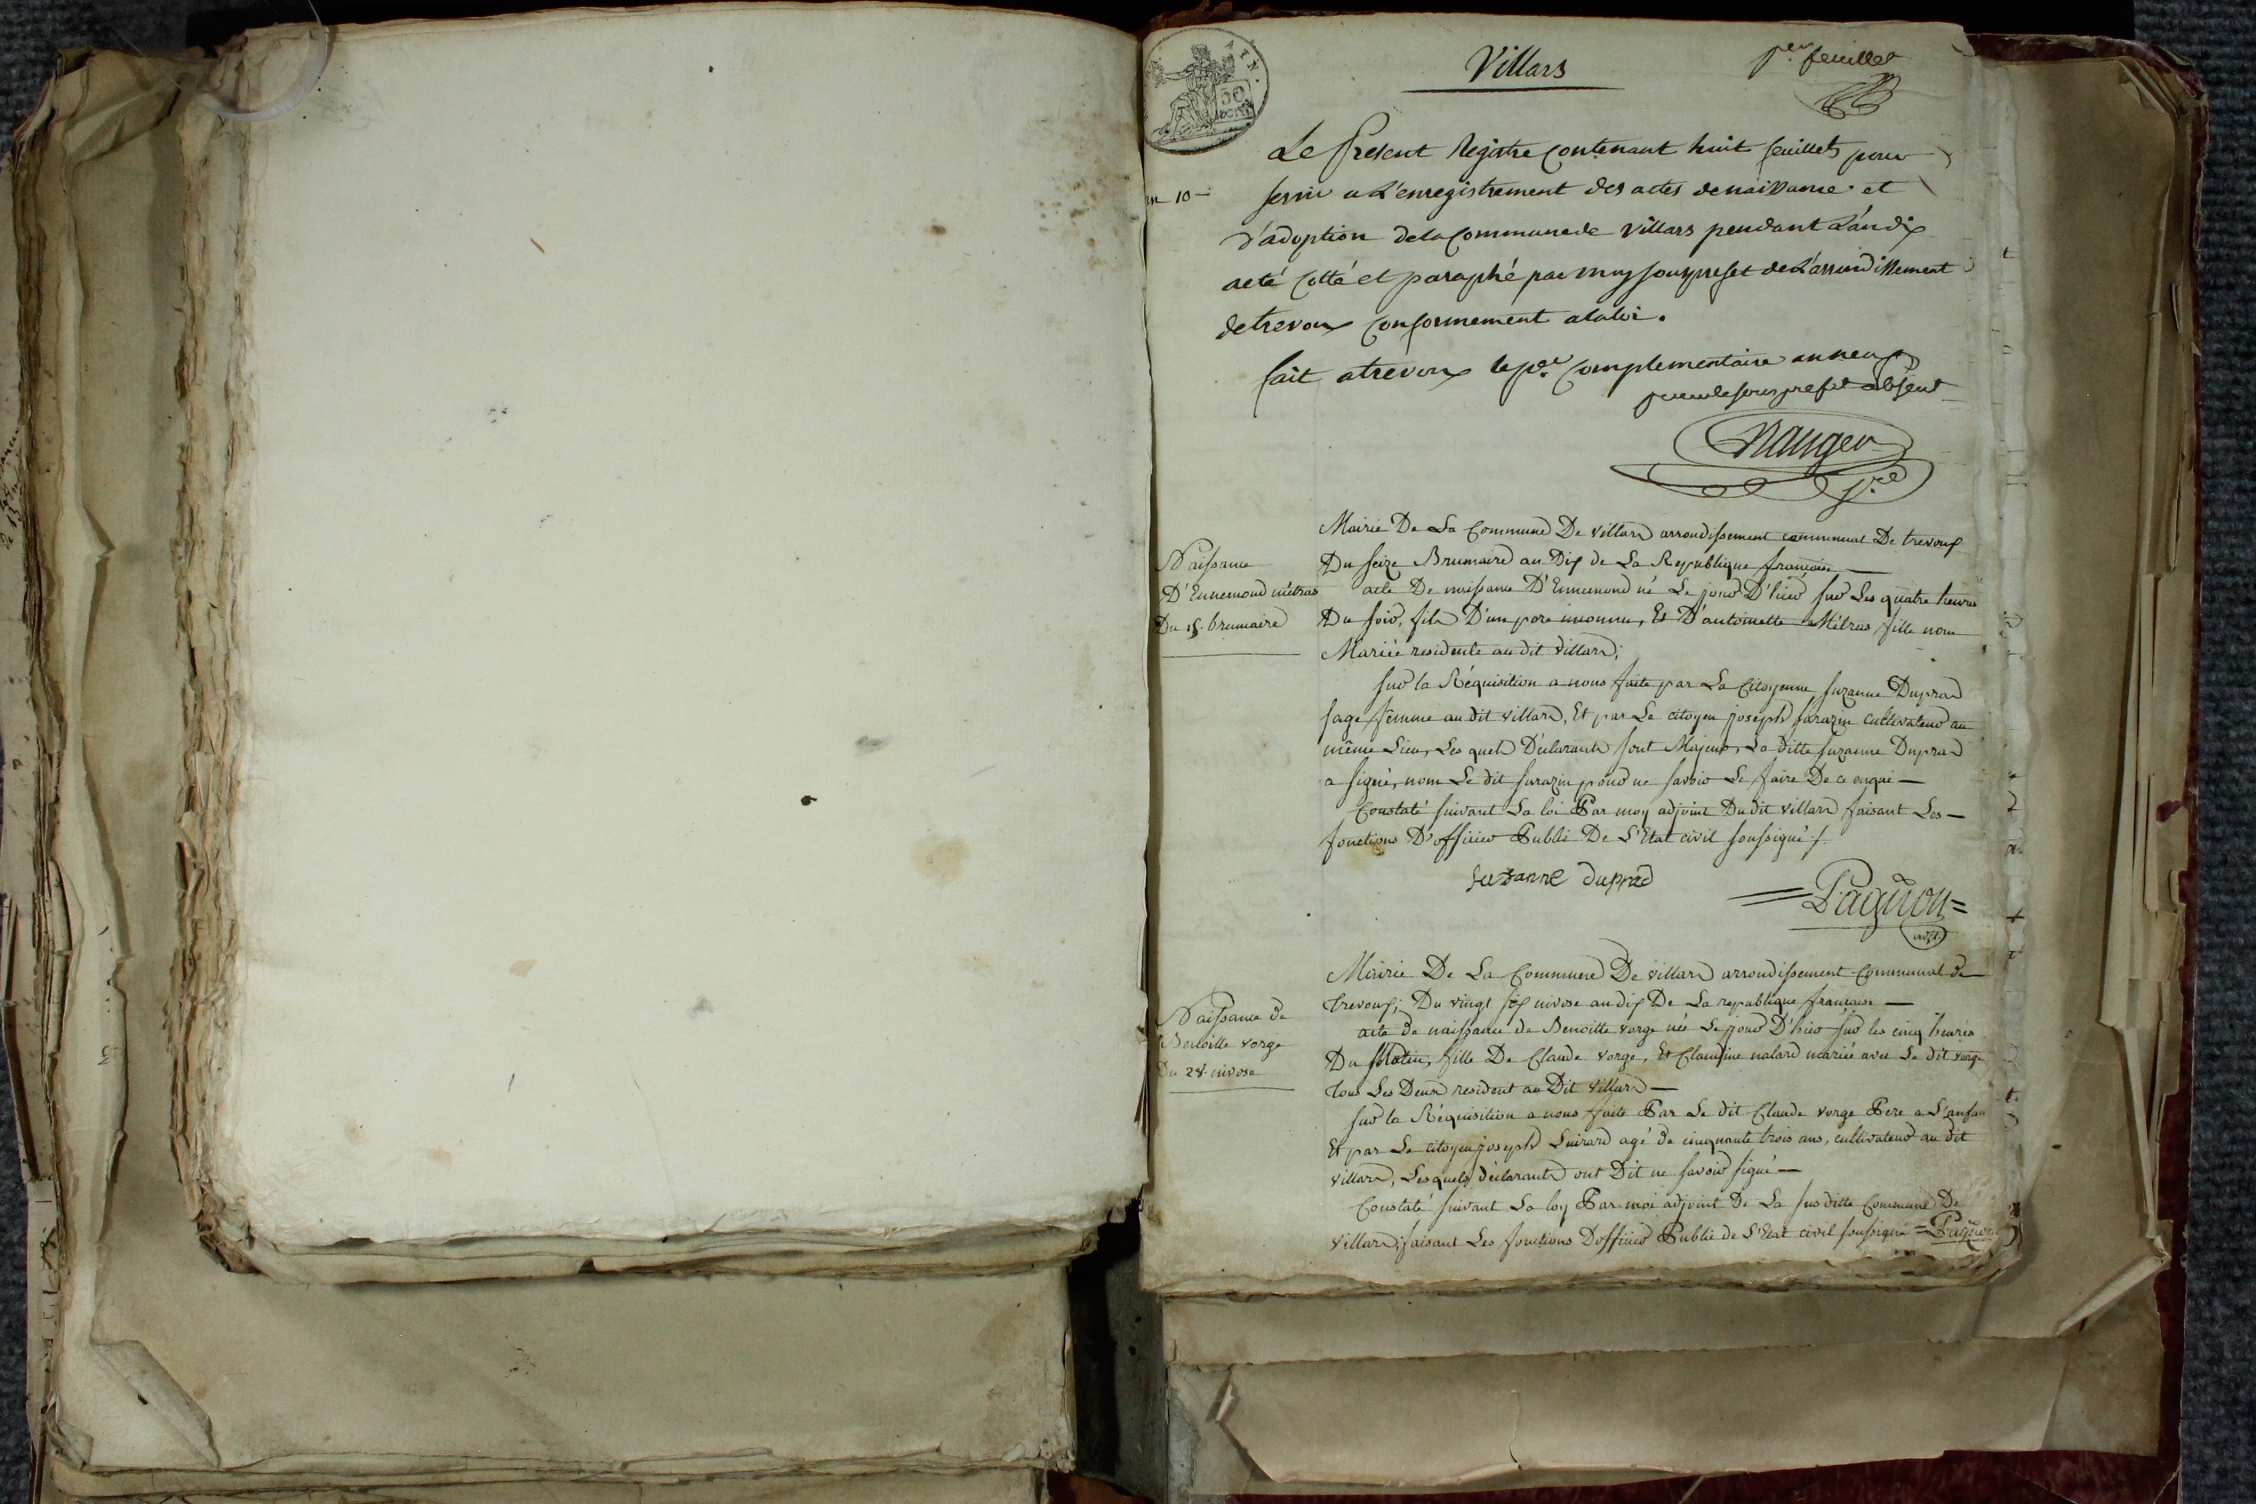 Villars
per feuillet
50
an 10 –
Le Present Registre Contenant huit feuillets pour
servir a L'enregistrement des actes de naissance et
d'adoption de la Commune de Villars pendant L'an dix
acté Cotté et paraphé par moy sousprefet de L'arrondissement
de trevoux Conformement a la loi.
fait a trevoux le per Complementaire an neuf
pour le sousprefet absent
Mairie De La Commune De villard arrondissement communal De trevoux
Du seize Brumaire an Dix de La Republique françoise —
Naissance
D'Ennemond métras
Du 15. brumaire
acte De naissance D'Ennemond né Le jour D'hier sur Les quatre heures
Du soir, fils D'un pere inconnu, Et D'antoinette Métras fille non
Mariée residente au dit villard;
sur la Réquisition a nous faite par La Citoyenne Suzanne Duprad
sage femme au dit villard, Et par Le citoyen joseph sarazin cultivateur au
même Lieu, Les quels Déclarants sont Majeurs, La ditte suzanne Duprad
a signé, nom Le dit sarazin pour ne savoir Le faire De ce enquis —
Constaté suivant La loi Par moy adjoint Du dit villard faisant Les —
fonctions D'officier Public De L'Etat civil soussigné ./.
suzanne duprad
= Paguon =
adjt
Mairie De La Commune De villard arrondissement Communal de
trevoux; Du vingt six nivose an dix De La republique françoise —
Naissance de
Benoitte vorge
Du 25. nivose
acte de naissance de Benoitte vorge née Le jour D'hier sur les cinq heures
Du Matin, fille De Claude vorge, Et Claudine nalard mariée avec Le dit vorge
tous Les Deux resident au Dit villard —
sur la Réquisition a nous faite Par Le dit Claude vorge Pere a L'anfan
Et par Le citoyen joseph Luirard agé de cinquante trois ans, cultivateur au dit
villard, Lesquels déclarants ont Dit ne savoir signé —
Constaté suivant La loy Par moi adjoint De La susditte Commune De
villard, faisant Les fonctions D'officier Public de L'Etat civil soussigné = Paguon